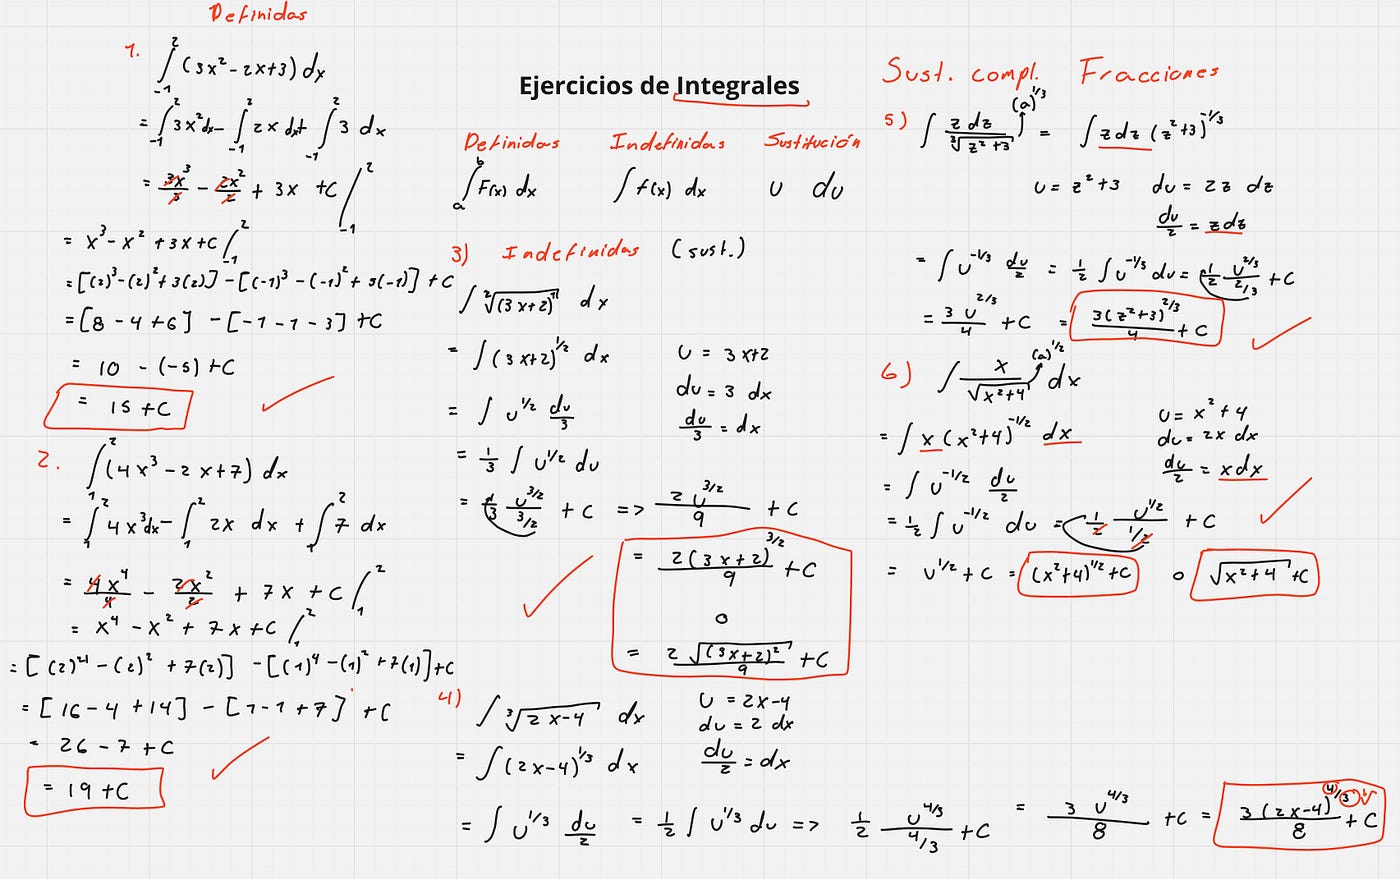 Definidas
1. ∫_{-1}^{2} (3x² - 2x+3) dx
= ∫_{-1}^{2} 3x² dx - ∫_{-1}^{2} 2x dx + ∫_{-1}^{2} 3 dx
= 3x³/3 - 2x²/2 + 3x + C /_{-1}^{2}
= x³ - x² + 3x + C /_{-1}^{2}
= [(2)³ - (2)² + 3(2)] - [(-1)³ - (-1)² + 3(-1)] + C
= [8 - 4 + 6] - [-1 - 1 - 3] + C
= 10 - (-5) + C
= 15 + C
2. ∫_{1}^{2} (4x³ - 2x+7) dx
= ∫_{1}^{2} 4x³ dx - ∫_{1}^{2} 2x dx + ∫_{1}^{2} 7 dx
= 4x⁴/4 - 2x²/2 + 7x + C /_{1}^{2}
= x⁴ - x² + 7x + C /_{1}^{2}
= [(2)⁴ - (2)² + 7(2)] - [(1)⁴ - (1)² + 7(1)] + C
= [16 - 4 + 14] - [1 - 1 + 7] + C
= 26 - 7 + C
= 19 + C
Ejercicios de Integrales
Definidas Indefinidas Sustitución
∫_{a}^{b} F(x) dx ∫ f(x) dx u du
3) Indefinidas (sust.)
∫ ²√(3x+2)¹ dx
= ∫ (3x+2)^{1/2} dx u = 3x+2
du = 3 dx
= ∫ u^{1/2} du/3 du/3 = dx
= 1/3 ∫ u^{1/2} du
= 1/3 u^{3/2}/3/2 + C => 2u^{3/2}/9 + C
= 2(3x+2)^{3/2}/9 + C
o
= 2√(3x+2)²/9 + C
4) ∫ ³√2x-4 dx u = 2x-4
du = 2 dx
= ∫ (2x-4)^{1/3} dx du/2 = dx
= ∫ u^{1/3} du/2 = 1/2 ∫ u^{1/3} du => 1/2 u^{4/3}/4/3 + C = 3u^{4/3}/8 + C = 3(2x-4)^{4/3}/8 + C
Sust. compl. Fracciones
5) ∫ z dz/³√z²+3 (a)^{1/3} = ∫ z dz (z²+3)^{-1/3}
u = z²+3 du = 2z dz
du/2 = z dz
= ∫ u^{-1/3} du/2 = 1/2 ∫ u^{-1/3} du = 1/2 u^{2/3}/2/3 + C
= 3u^{2/3}/4 + C = 3(z²+3)^{2/3}/4 + C
6) ∫ x/√x²+4 (a)^{1/2} dx
= ∫ x (x²+4)^{-1/2} dx u = x²+4
du = 2x dx
= ∫ u^{-1/2} du/2 du/2 = x dx
= 1/2 ∫ u^{-1/2} du = 1/2 u^{1/2}/1/2 + C
= u^{1/2} + C = (x²+4)^{1/2} + C o √x²+4 + C